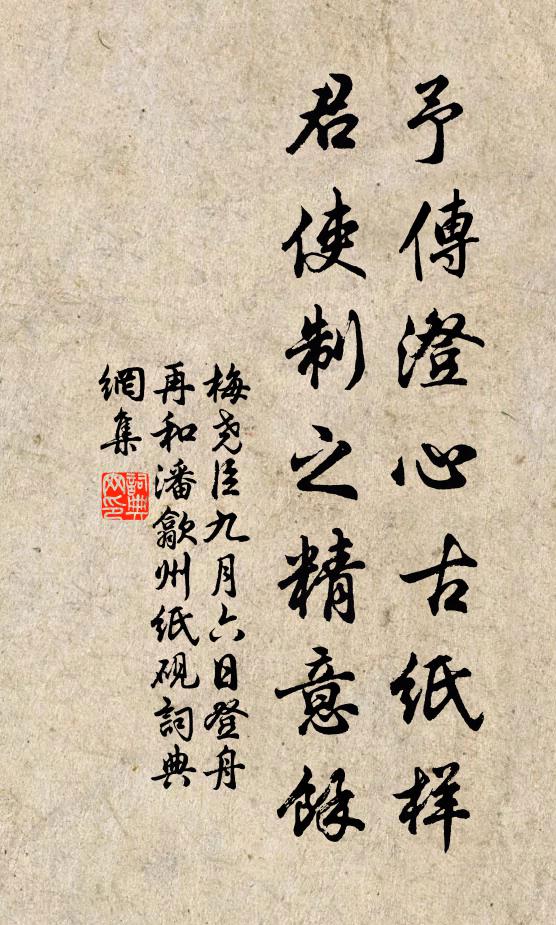 予傳澄心古紙样
君使制之精意餘
梅尧臣九月六日登舟
再和潘歙州紙硯詞典
網集
詞典
网印